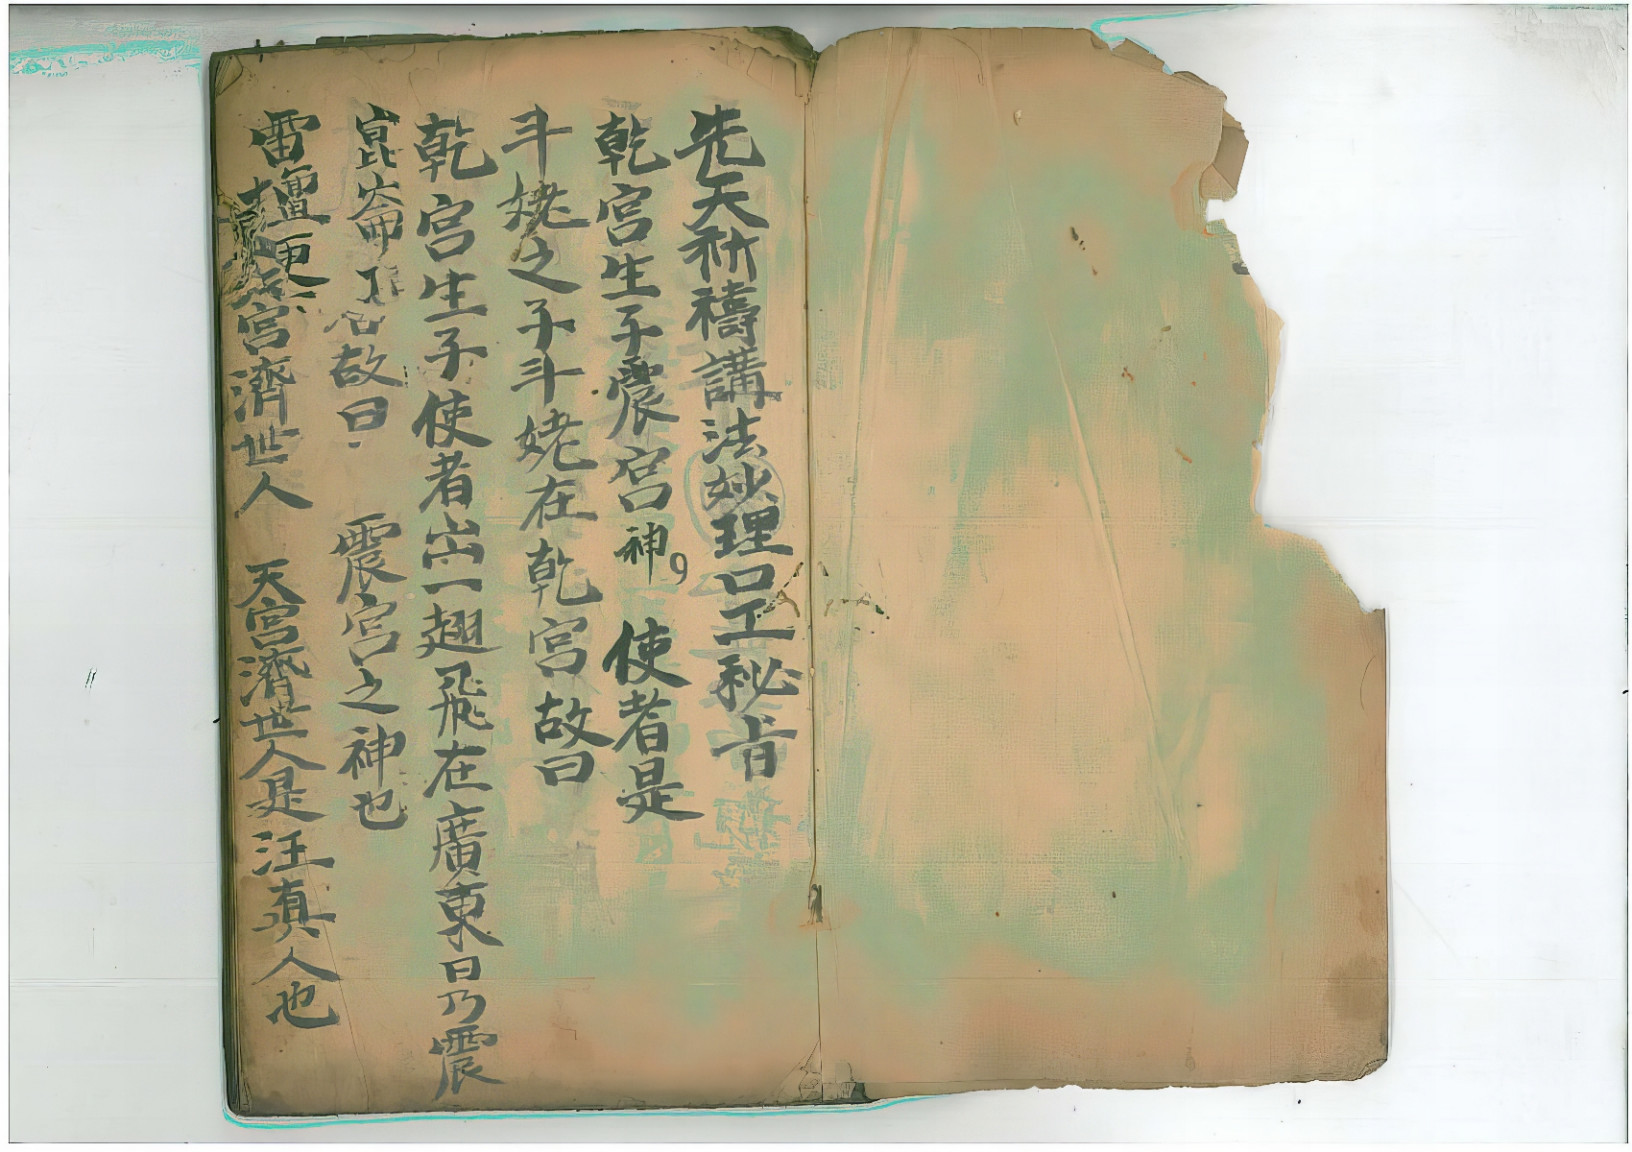 先天祈禱講法妙理口工秘旨
乾宫生子震宫神 使者是
斗姥之子斗姥在乾宫故曰
乾宫生子使者出一翅飛在廣東日乃震
崑崙 故曰 震宫之神也
雷壇更
宫濟世人 天宫濟世人是汪真人也